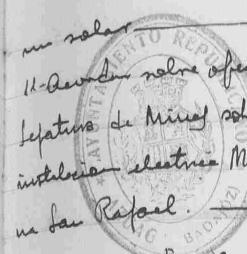 un solar
11-Acordar sobre ofer
Jefatura de Minas sob
instalacion electrica M
na San Rafael.
AYUNTAMIENTO REPUBLICANO
BADAJOZ